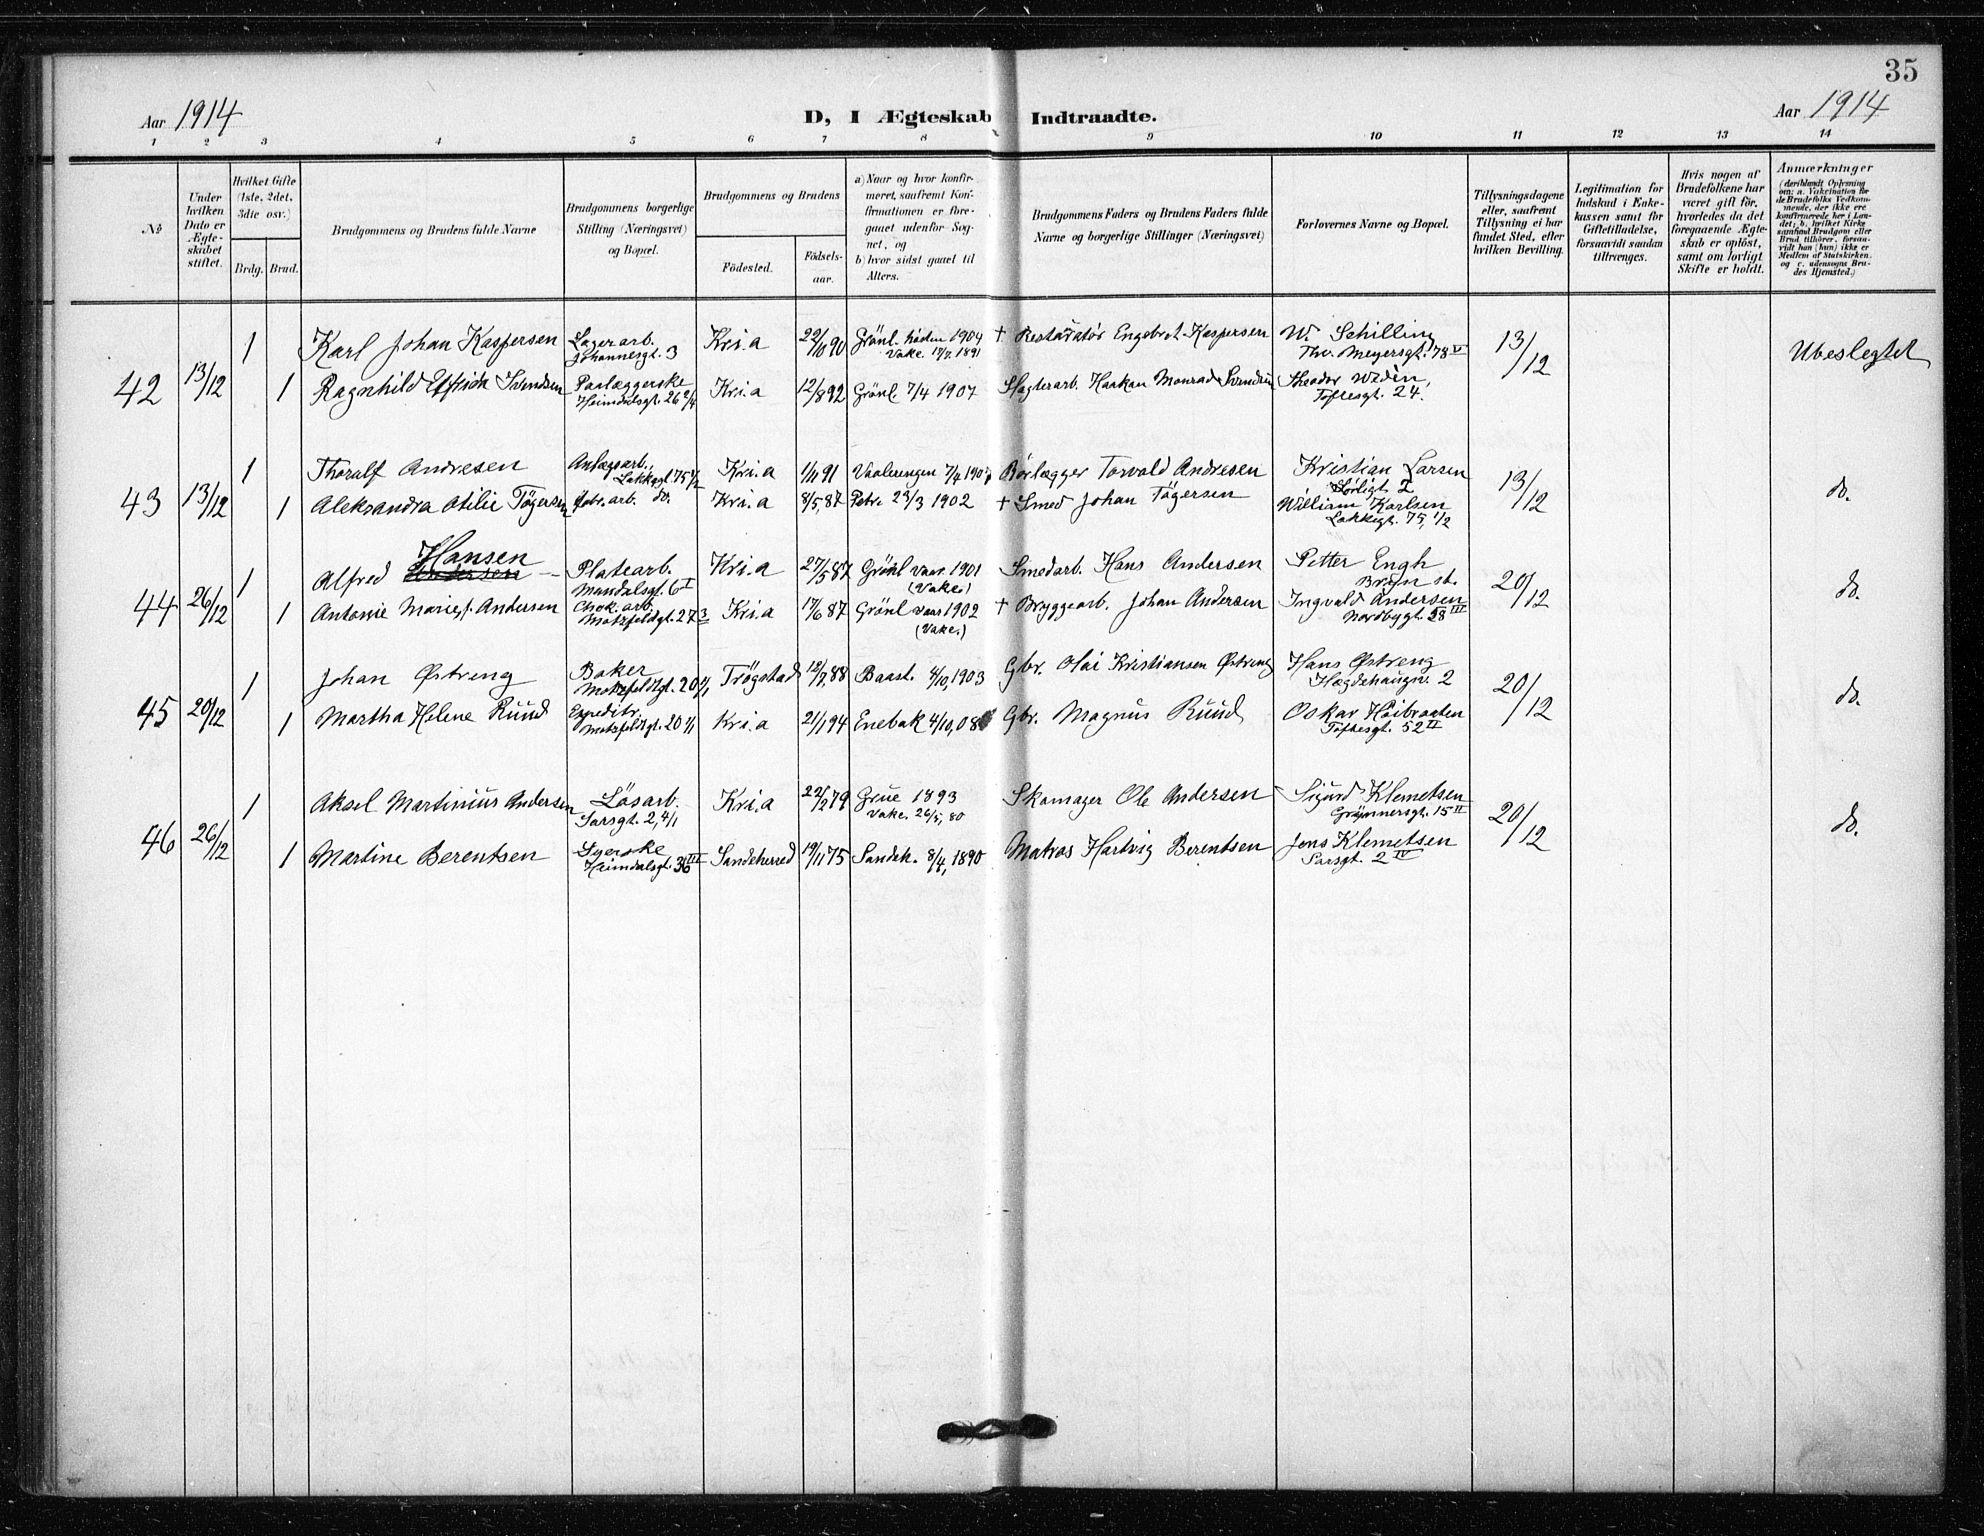 35
Aar 1914
D, I Ægteskab Indtraadte.
Aar 1914
1 2 3 4 5 6 7 8 9 10 11 12 13 14
No
Under hvilken Dato er Ægteskabet stiftet.
Hvilket Gifte (1ste, 2det, 3die osv.)
Brdg. Brud.
Brudgommens og Brudens fulde Navne
Brudgommens borgerlige Stilling (Næringsvei) og Bopæl.
Brudgommens og Brudens
Födested.
Födselsaar.
a) Naar og hvor konfirmeret, saafremt Konfirmationen er foregaaet udenför Sognet, og
b) hvor sidst gaaet til Alters.
Brudgommens Faders og Brudens Faders fulde Navne og borgerlige Stillinger (Næringsvei)
Forlovernes Navne og Bopæl.
Tillysningsdagene eller, saafremt Tillysning ei har fundet Sted, efter hvilken Bevilling.
Legitimation for Indskud i Enkekassen samt for Giftetilladelse, forsaavidt saadan tiltrænges.
Hvis nogen af Brudefolkene har været gift för, hvorledes da det foregaaende Ægteskab er oplöst, samt om lovligt Skifte er holdt.
Anmærkninger
(deriblandt Oplysning om: a. Vakcination för de Brudefolks Vedkommende, der ikke ere konfirmerede her i Landet; b. hvilket Kirkesamfund Brudgom eller Brud tilhörer, forsaavidt han (hun) ikke er Medlem af Statskirken, og c. udensogns Brudes Hjemsted.)
42 13/12
1 Karl Johan Kaspersen Lagerarb. Johannesgt. 3 Kri.a 22/10 90 Grönl. höden 1904 Vakc. 17/7 1891 † Restauratör Engebret Kaspersen W. Schilling Thv. Meyersgt. 78 V 13/12 Ubeslegtet
1 Ragnhild Svendsen Paalæggerske Heimdalsgt. 26 2/4 Kri.a 12/8 92 Grönl. 7/4 1907 Slagterarb. Haakon Monrad Svendsen Theodor Wedin, Toftesgt. 24.
43 13/12
1 Thoralf Andresen Anlægsarb., Lakkegt. 75 1/2 Kri.a 1/11 91 Vaalerengen 7/4 1907 Rörlægger Torvald Andresen Kristian Larsen Sörligt. 2 13/12 do.
1 Aleksandra Otilie Tögersen Fabr. arb. do. Kri.a 8/5, 87 Petr. 23/3 1902 † Smed Johan Tögersen William Karlsen Lakkegt. 75, 1/2
44 26/12
1 Alfred Andersen Hansen Platearb. Mandalsgt. 6 I Kri.a 27/5 87 Grönl vaar 1901 (Vakc.) Smedarb. Hans Andersen Petter Engh Bryn st. 20/12 do.
1 Antonie Marie f. Andersen Chok. arb. Motzfeldtgt. 27 3 Kri.a 17/6 87 Grönl vaar 1902 (Vakc.) † Bryggearb. Johan Andersen Ingvald Andersen Nordbygt. 28 III
45 20/12
1 Johan Østreng Baker Motzfeldtgt. 20 1/1 Trögstad 12/7, 88 Baast. 4/10, 1903 Gbr. Olai Kristiansen Østreng Hans Østreng Hægdehaugv. 2 20/12 do.
1 Martha Helene Ruud Expeditr. Motzfeldtgt. 20 1/1 Kri.a 21/1 94 Enebak 4/10, 08 Gbr. Magnus Ruud Oskar Höibraaten Toftesgt. 52 II
46 26/12
1 Aksel Martinius Andersen Lösarb. Sarsgt. 2, 4/1 Kri.a 22/2 79 Grue 1893 Vakc. 26/5, 80 Skomager Ole Andersen Sigurd Klemetsen Grünnersgt. 15 II 20/12 do.
1 Martine Berentsen Syerske Heimdalsgt. 36 III Sandeherred 19/11 75 Sandeh. 8/4, 1890 Matros Hartvig Berentsen Jens Klemetsen Sarsgt. 2 IV